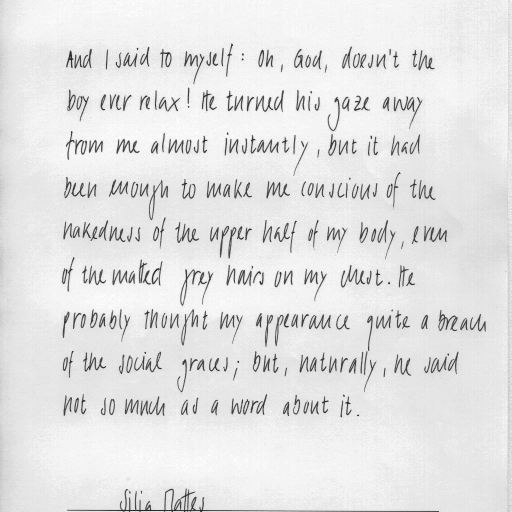 And I said to myself : Oh, God, doesn't the
boy ever relax! He turned his gaze away
from me almost instantly, but it had
been enough to make me conscious of the
nakedness of the upper half of my body, even
of the matted grey hairs on my chest. He
probably thought my appearance quite a breach
of the social graces; but, naturally, he said
not so much as a word about it.
Silia Mattes